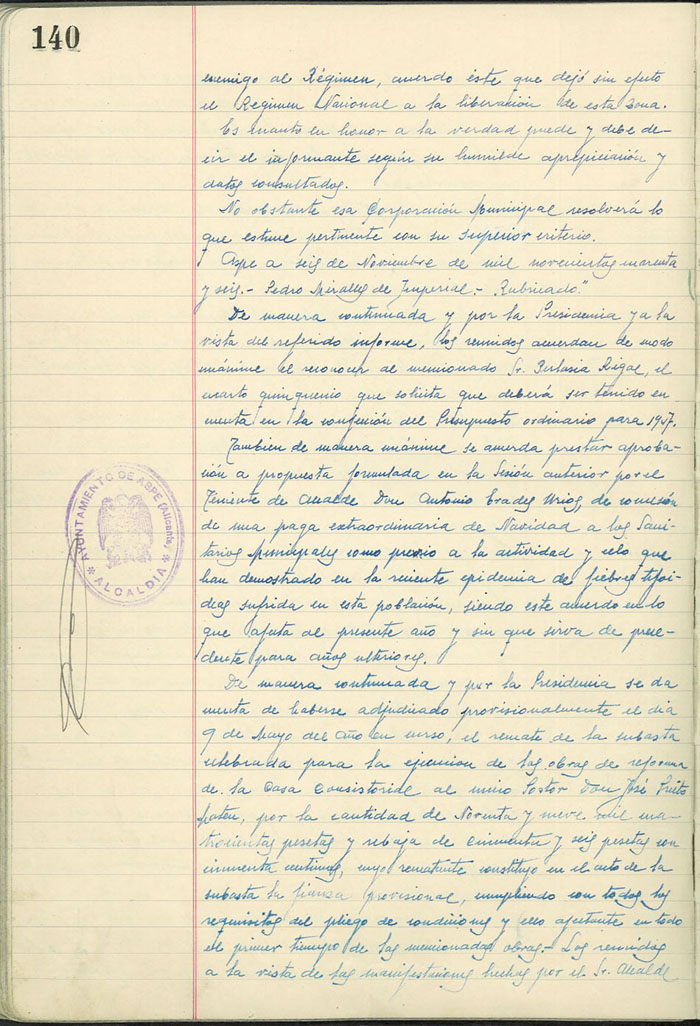 140
enemigo al Régimen, acuerdo éste que dejó sin efecto
el Regimen Nacional a la liberación de esta Zona.
Es cuanto en honor a la verdad puede y debe de-
cir el informante según su humilde apreciación y
datos consultados.
No obstante esa Corporación Municipal resolverá lo
que estime pertinente con su superior criterio.
Aspe a seis de Noviembre de mil novecientos cuarenta
y seis.- Pedro Miralles de Imperial.- Rubricado."
De manera continuada y por la Presidencia y a la
vista del referido informe, los reunidos acuerdan de modo
unánime el reconocer al mencionado Sr. Rigal, el
cuarto quinquenio que solicita que deberá ser tenido en
cuenta en la confección del Presupuesto ordinario para 1947.
Tambien de manera unánime se acuerda prestar aproba-
ción a propuesta formulada en la Sesión anterior por el
Teniente de Alcalde Don Antonio Erades, de concesión
de una paga extraordinaria de Navidad a los Sani-
tarios Municipales como premio a la actividad y celo que
han demostrado en la reciente epidemia de fiebres tifoi-
deas sufrida en esta población, siendo este acuerdo en lo
que afecta al presente año y sin que sirva de prece-
dente para años ulteriores.
De manera continuada y por la Presidencia se da
cuenta de haberse adjudicado provisionalmente el dia
9 de Mayo del año en curso, el remate de la subasta
celebrada para la ejecucion de las obras de reforma
de la Casa Consistorial al unico Postor Don José Prieto
por la cantidad de Noventa y nueve mil cua-
trocientas pesetas y rebaja de cincuenta y seis pesetas con
cincuenta centimos, cuyo rematante constituyo en el acto de la
subasta la fianza provisional, cumpliendo con todos los
requisitos del pliego de condiciones y ello ajustante en todo
el primer tiempo de las mencionadas obras.- Los reunidos
a la vista de las manifestaciones hechas por el Sr. Alcalde
AYUNTAMIENTO DE ASPE (Alicante)
ALCALDIA